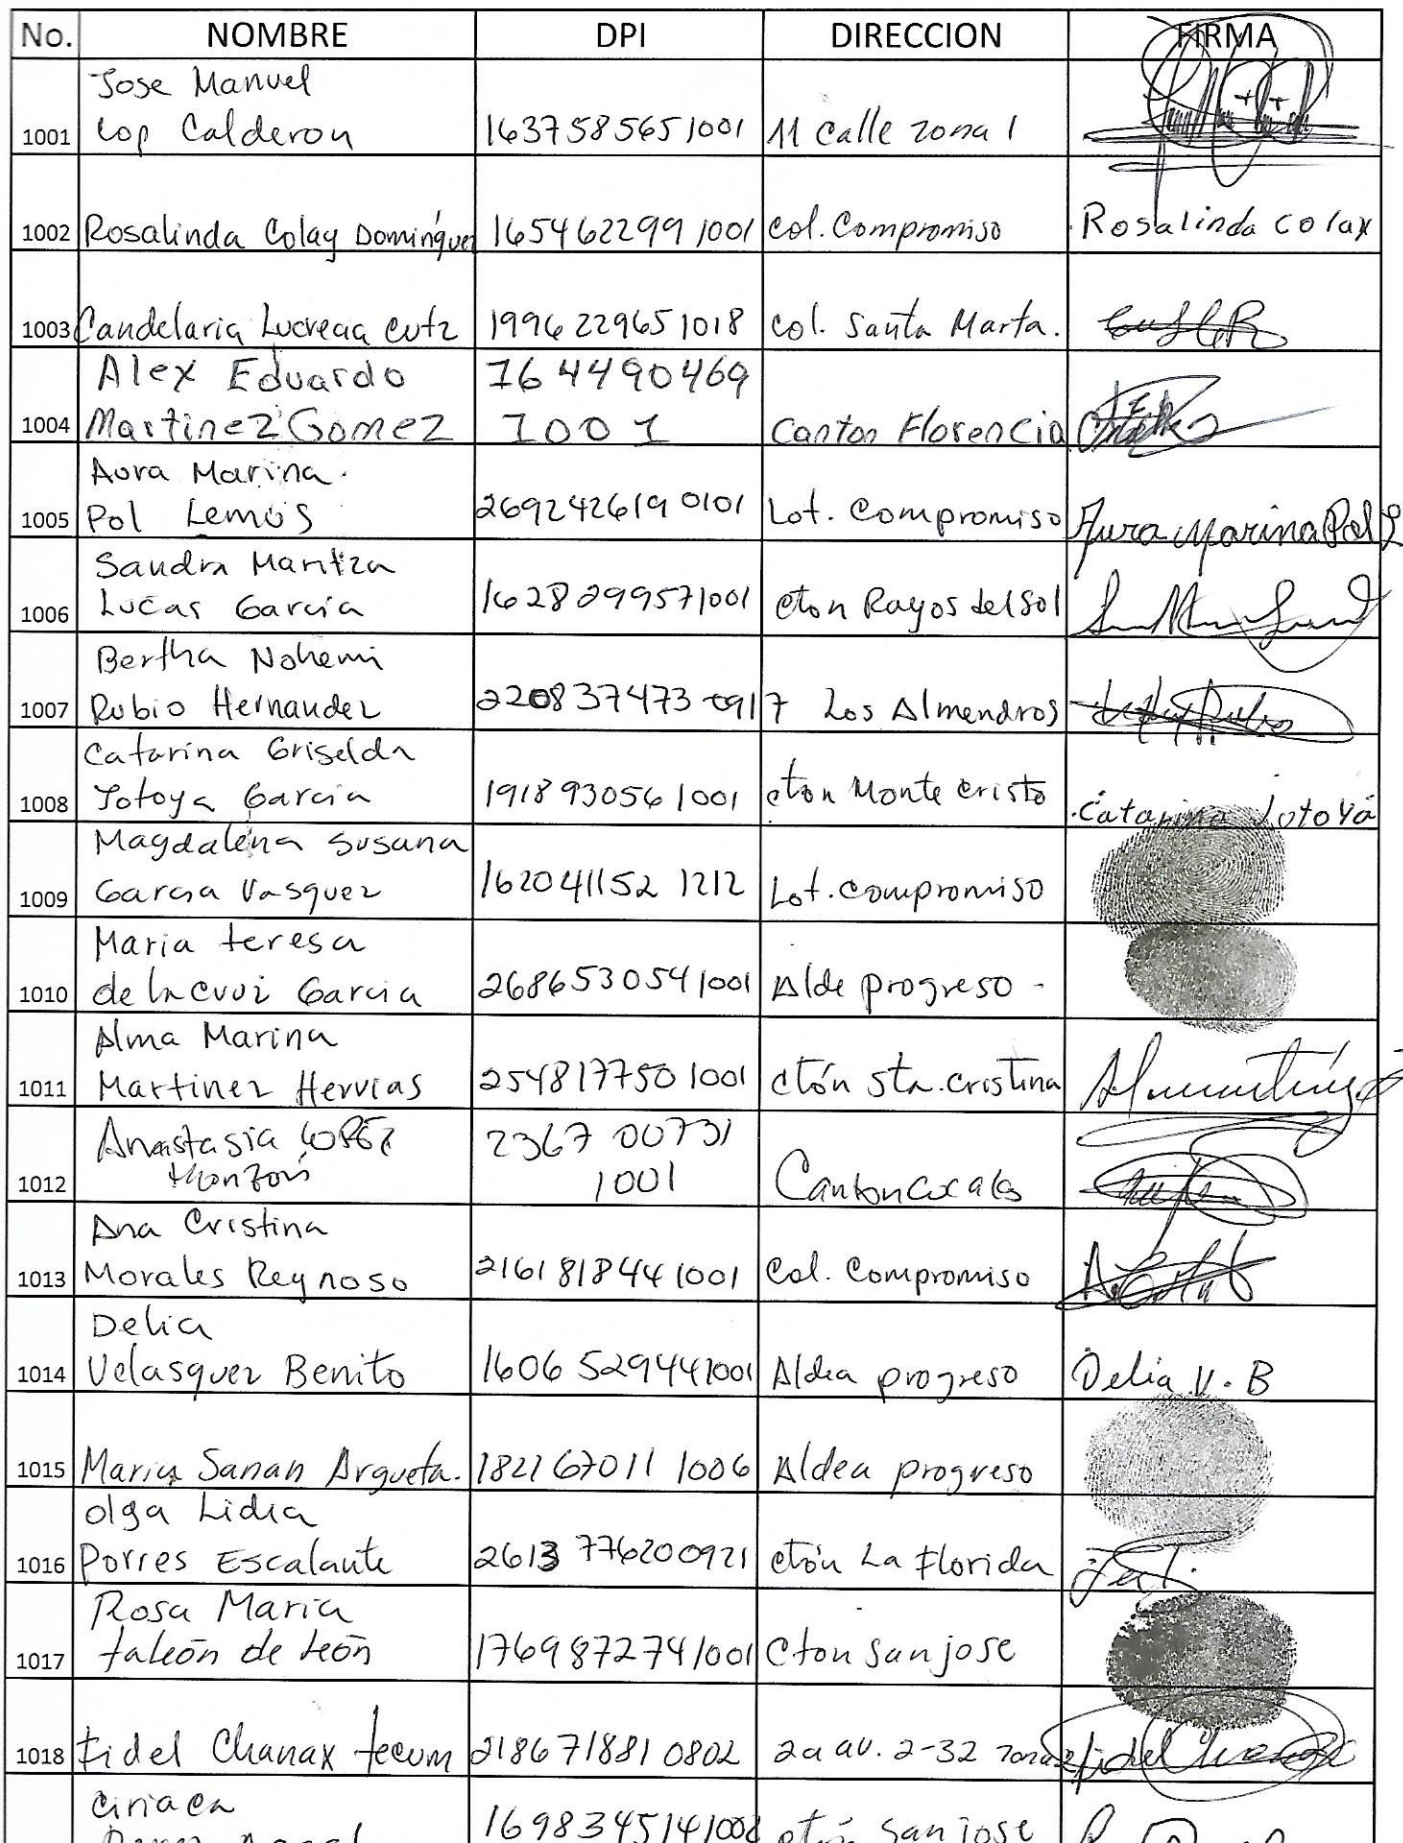 No. NOMBRE DPI DIRECCION FIRMA
Jose Manuel
1001 Cop Calderon 1637585651001 11 calle zona 1
1002 Rosalinda Colay Domínguez 1654622991001 Col. Compromiso Rosalinda Colax
1003 Candelaria Lucrecia Cutz 1996229651018 Col. Santa Marta.
Alex Eduardo 164490469
1004 Martinez Gomez 1001 Canton Florencia
Aura Marina.
1005 Pol Lemus 2692426190101 Lot. Compromiso Aura Marina Pol L
Sandra Maritza
1006 Lucas Garcia 1628299571001 Cton Rayos del Sol
Bertha Nohemi
1007 Rubio Hernandez 2208374730917 Los Almendros
Catarina Griselda
1008 Totoya Garcia 1918930561001 cton Monte Cristo Catarina Totoyá
Magdalena Susana
1009 Garcia Vasquez 162041152 1212 Lot. compromiso
Maria teresa
1010 de la cruz Garcia 2686530541001 Alde progreso -
Alma Marina
1011 Martinez Hervias 2548177501001 ctón sta. cristina
Anastasia LOPEZ 2367 00731
1012 Monzon 1001 Canton
Ana Cristina
1013 Morales Reynoso 2161818441001 Col. Compromiso
Delia
1014 Velasquez Benito 1606529441001 Aldea progreso Delia V. B
1015 Maria Sanan Argueta. 182167011 1006 Aldea progreso
Olga Lidia
1016 Porres Escalante 2613 776200921 ctón La Florida
Rosa Maria
1017 taleón de León 1769872741001 Cton San jose
1018 Fidel Chanax tecum 2186718810802 2a av. 2-32 zona 2 Fidel Chanax
Ciriaca
1698345141008 ctón San jose